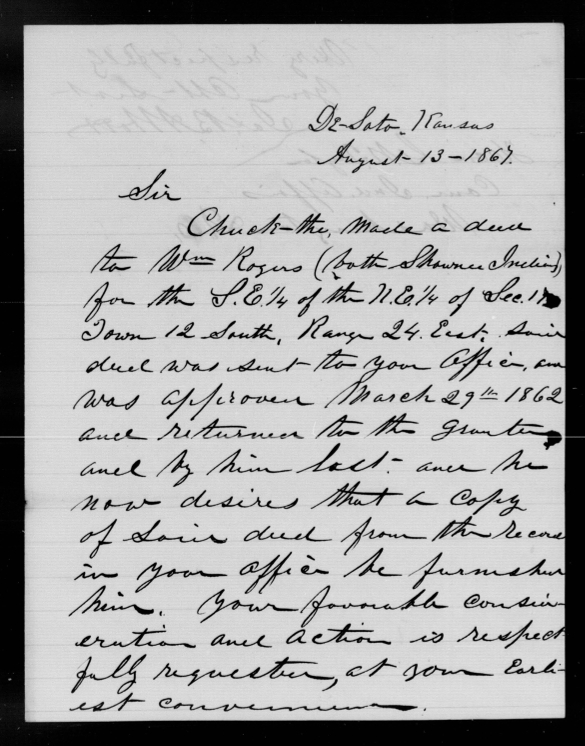 De-Soto, Kansas
August 13-1867.
Sir
Chuck-the, made a deed
to Wm Rogers (both Shawnee Indians)
for the S.E. 1/4 of the N.E. 1/4 of Sec. 17
Town 12 South, Range 24. East, said
deed was sent to your Office, and
was approved March 29th 1862
and returned to the grantee
and by him lost. and he
now desires that a Copy
of said deed from the record
in your office be furnished
him. Your favorable consid-
eration and action is respect-
fully requested, at your Earli-
est convenience.